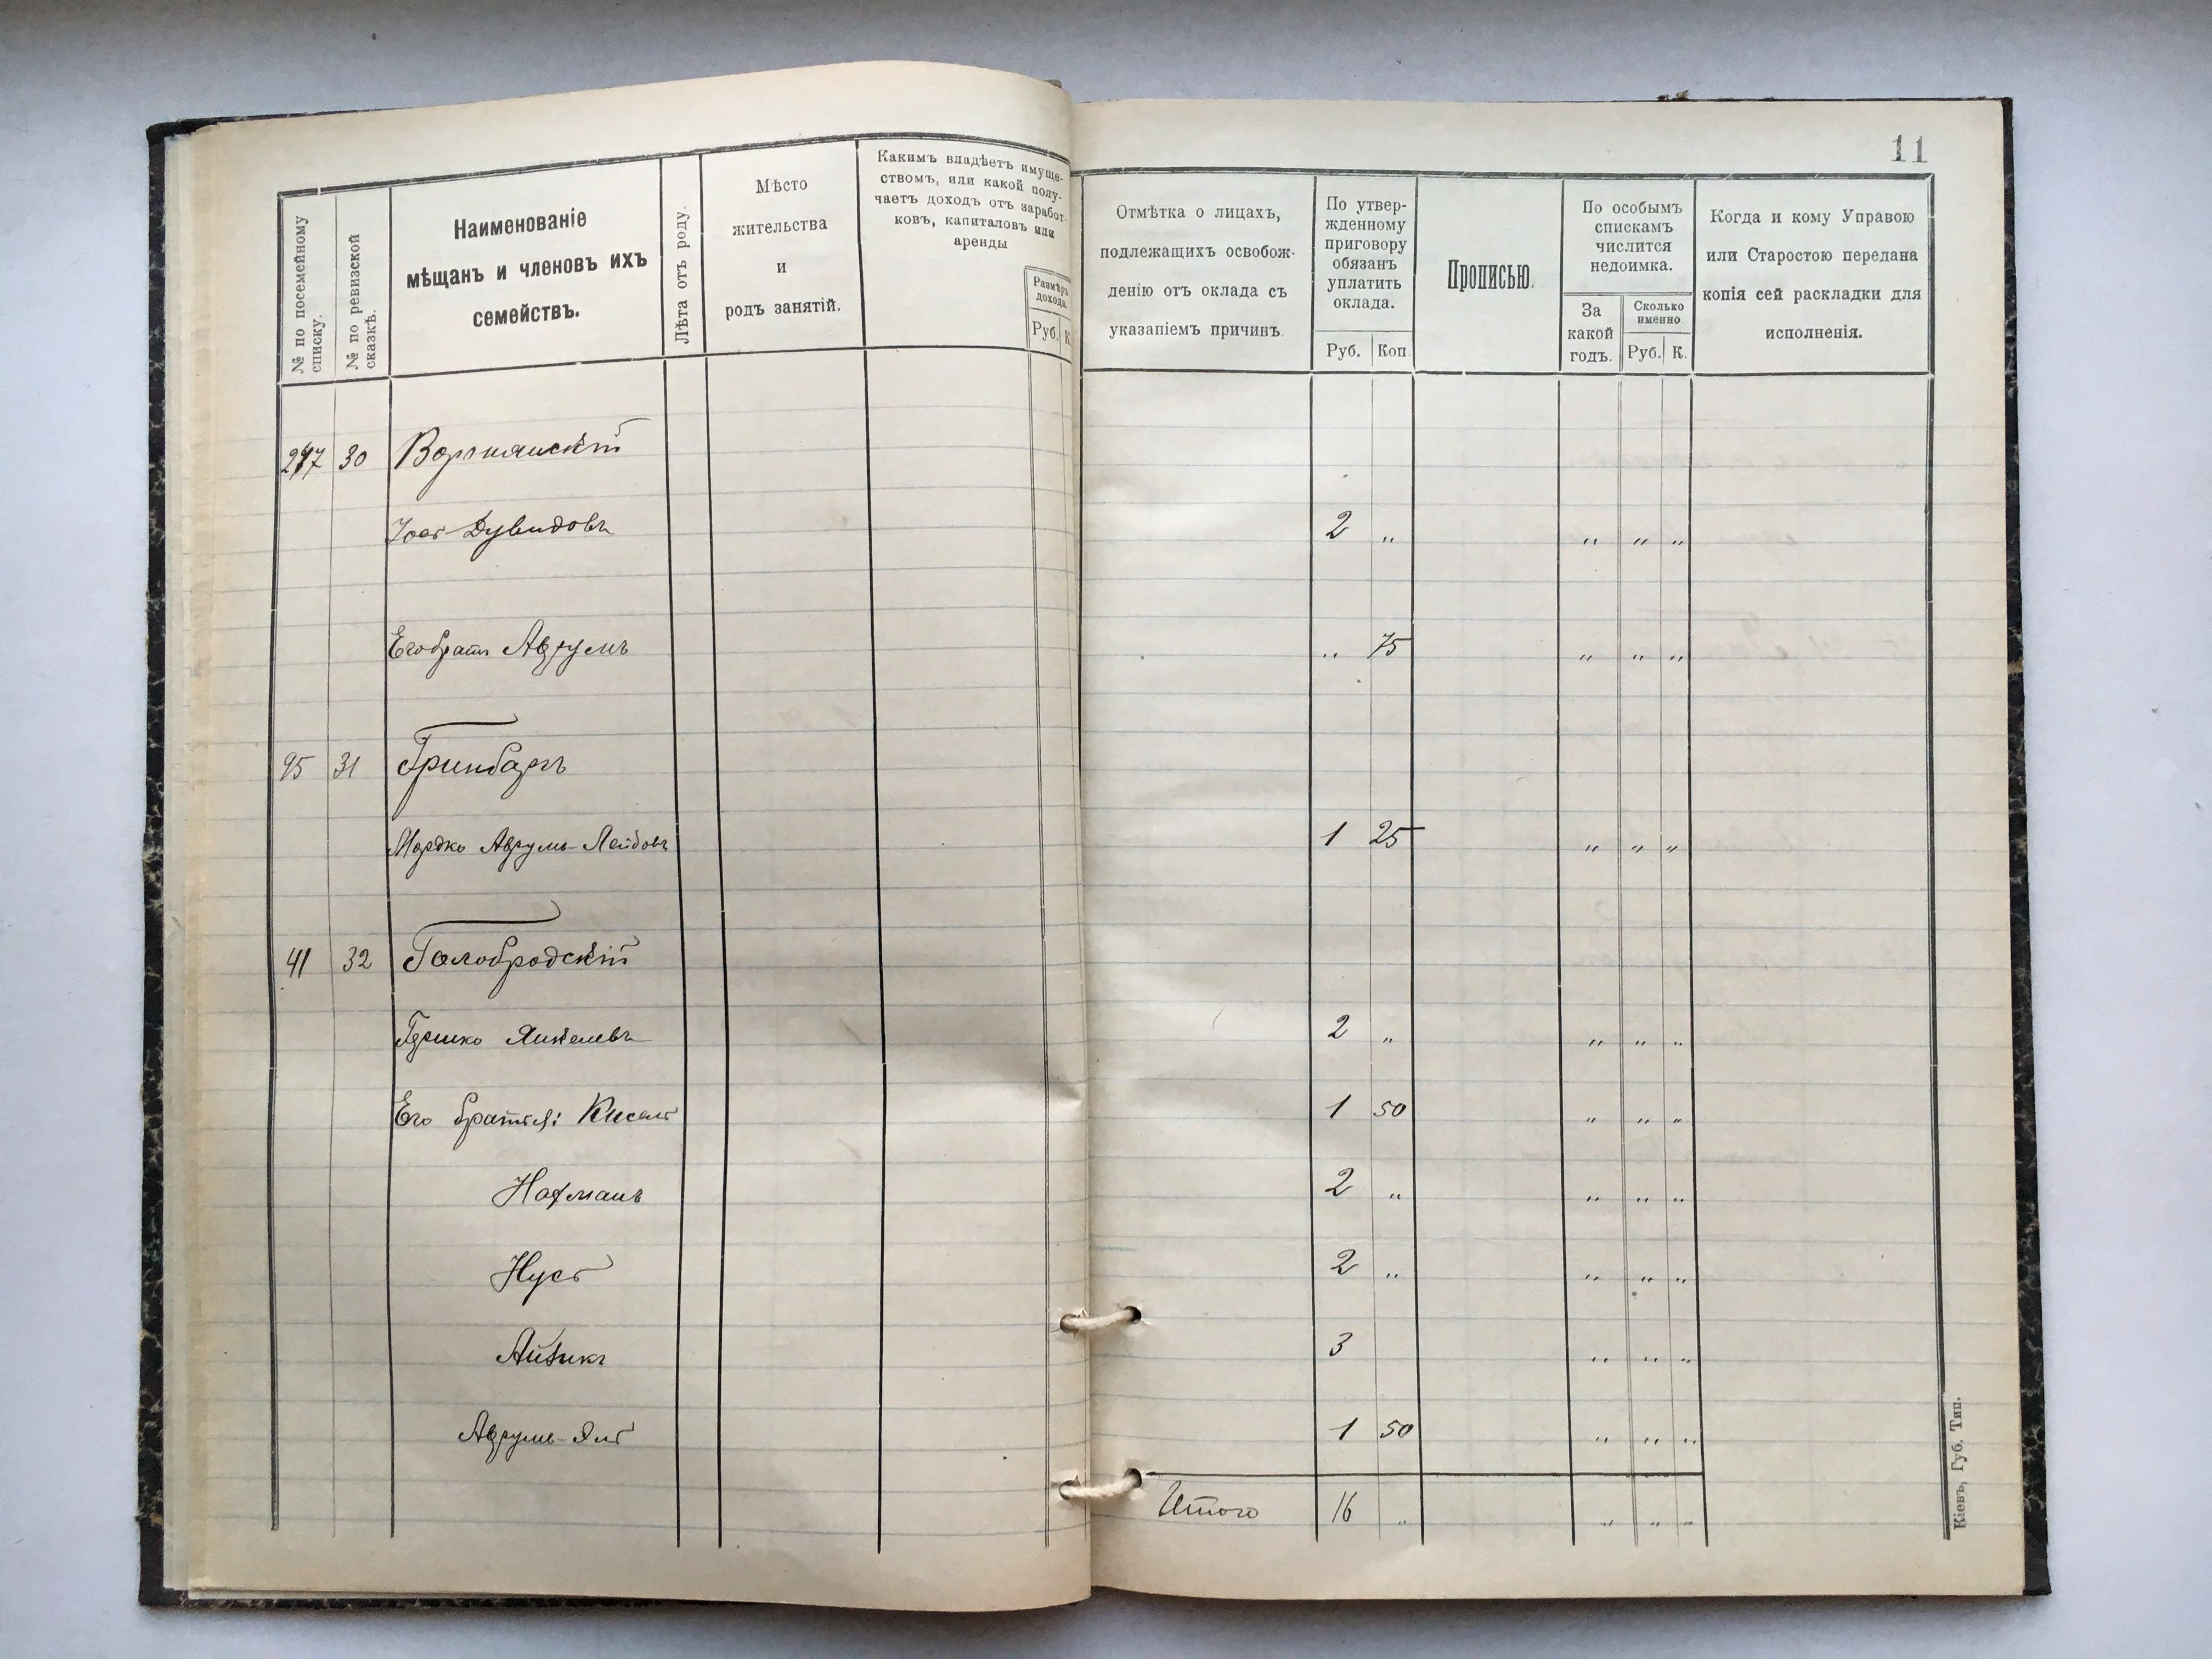 11
№ по посемейному списку.
№ по ревизской сказкѣ.
Наименованіе
мѣщанъ и членовъ ихъ
семействъ.
Лѣта отъ роду.
Мѣсто
жительства
и
родъ занятій.
Какимъ владѣетъ имуще-
ствомъ, или какой полу-
чаетъ доходъ отъ заработ-
ковъ, капиталовъ или
аренды
Размѣръ
дохода.
Руб. К.
Отмѣтка о лицахъ,
подлежащихъ освобож-
денію отъ оклада съ
указаніемъ причинъ.
По утвер-
жденному
приговору
обязанъ
уплатить
оклада.
Руб. Коп.
Прописью.
По особымъ
спискамъ
числится
недоимка.
За
какой
годъ.
Сколько
именно
Руб. К.
Когда и кому Управою
или Старостою передана
копія сей раскладки для
исполненія.
30
Іось Дувидовъ 2 „ „ „ „
Его братъ Аврумъ „ 75 „ „ „
95 31 Гринбергъ
Мордко Аврумъ-Лейбовъ 1 25 „ „ „
41 32 Голобродскій
Гершко Янкелевъ 2 „ „ „ „
Его братья: Кисель 1 50 „ „ „
Нахманъ 2 „ „ „ „
Нусь 2 „ „ „ „
Айзикъ 3 „ „ „
Аврумъ-Эль 1 50 „ „ „
Итого 16 „ „ „ „
Кіевъ, Губ. Тип.